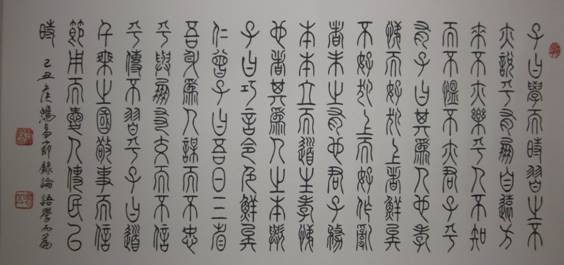 子曰學而時習之不
亦說乎有朋自遠方
來不亦樂乎人不知
而不慍不亦君子乎
有子曰其爲人也孝
悌而好犯上者鮮矣
不好犯上而好作亂
者未之有也君子務
本本立而道生孝悌
也者其爲人之本歟
子曰巧言令色鮮矣
仁曾子曰吾日三省
吾身爲人謀而不忠
乎與朋友交而不信
乎傳不習乎子曰道
千乘之國敬事而信
節用而愛人使民以
時 己丑 節錄論語學而篇